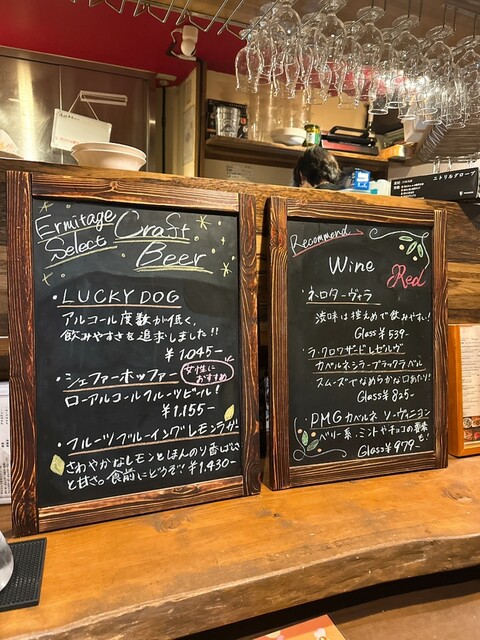 Ermitage
Select
Craft
Beer
・LUCKY DOG
アルコール度数が低く、
飲みやすさを追求しました!!
¥1.045-
・シェファーホッファー
女性に
おすすめ
ローアルコールフルーツビール!
¥1.155-
・フルーツブルーイングレモンラガー
さわやかなレモンとほんのり香ばしさ
と甘さ。食前にどうぞ! ¥1.430-
Recommend
Wine
Red
・ネロターヴォラ
渋味は控えめで飲みやすい!
Glass¥539-
・ラ・クロワザードレゼルヴ
カベルネシラーブラックラベル
スムーズでなめらかな口あたり!
Glass¥825-
・PMGカベルネソーヴィニヨン
ベリー系・ミントやチョコの要素
も!
Glass¥979-
ニトリルグローブ